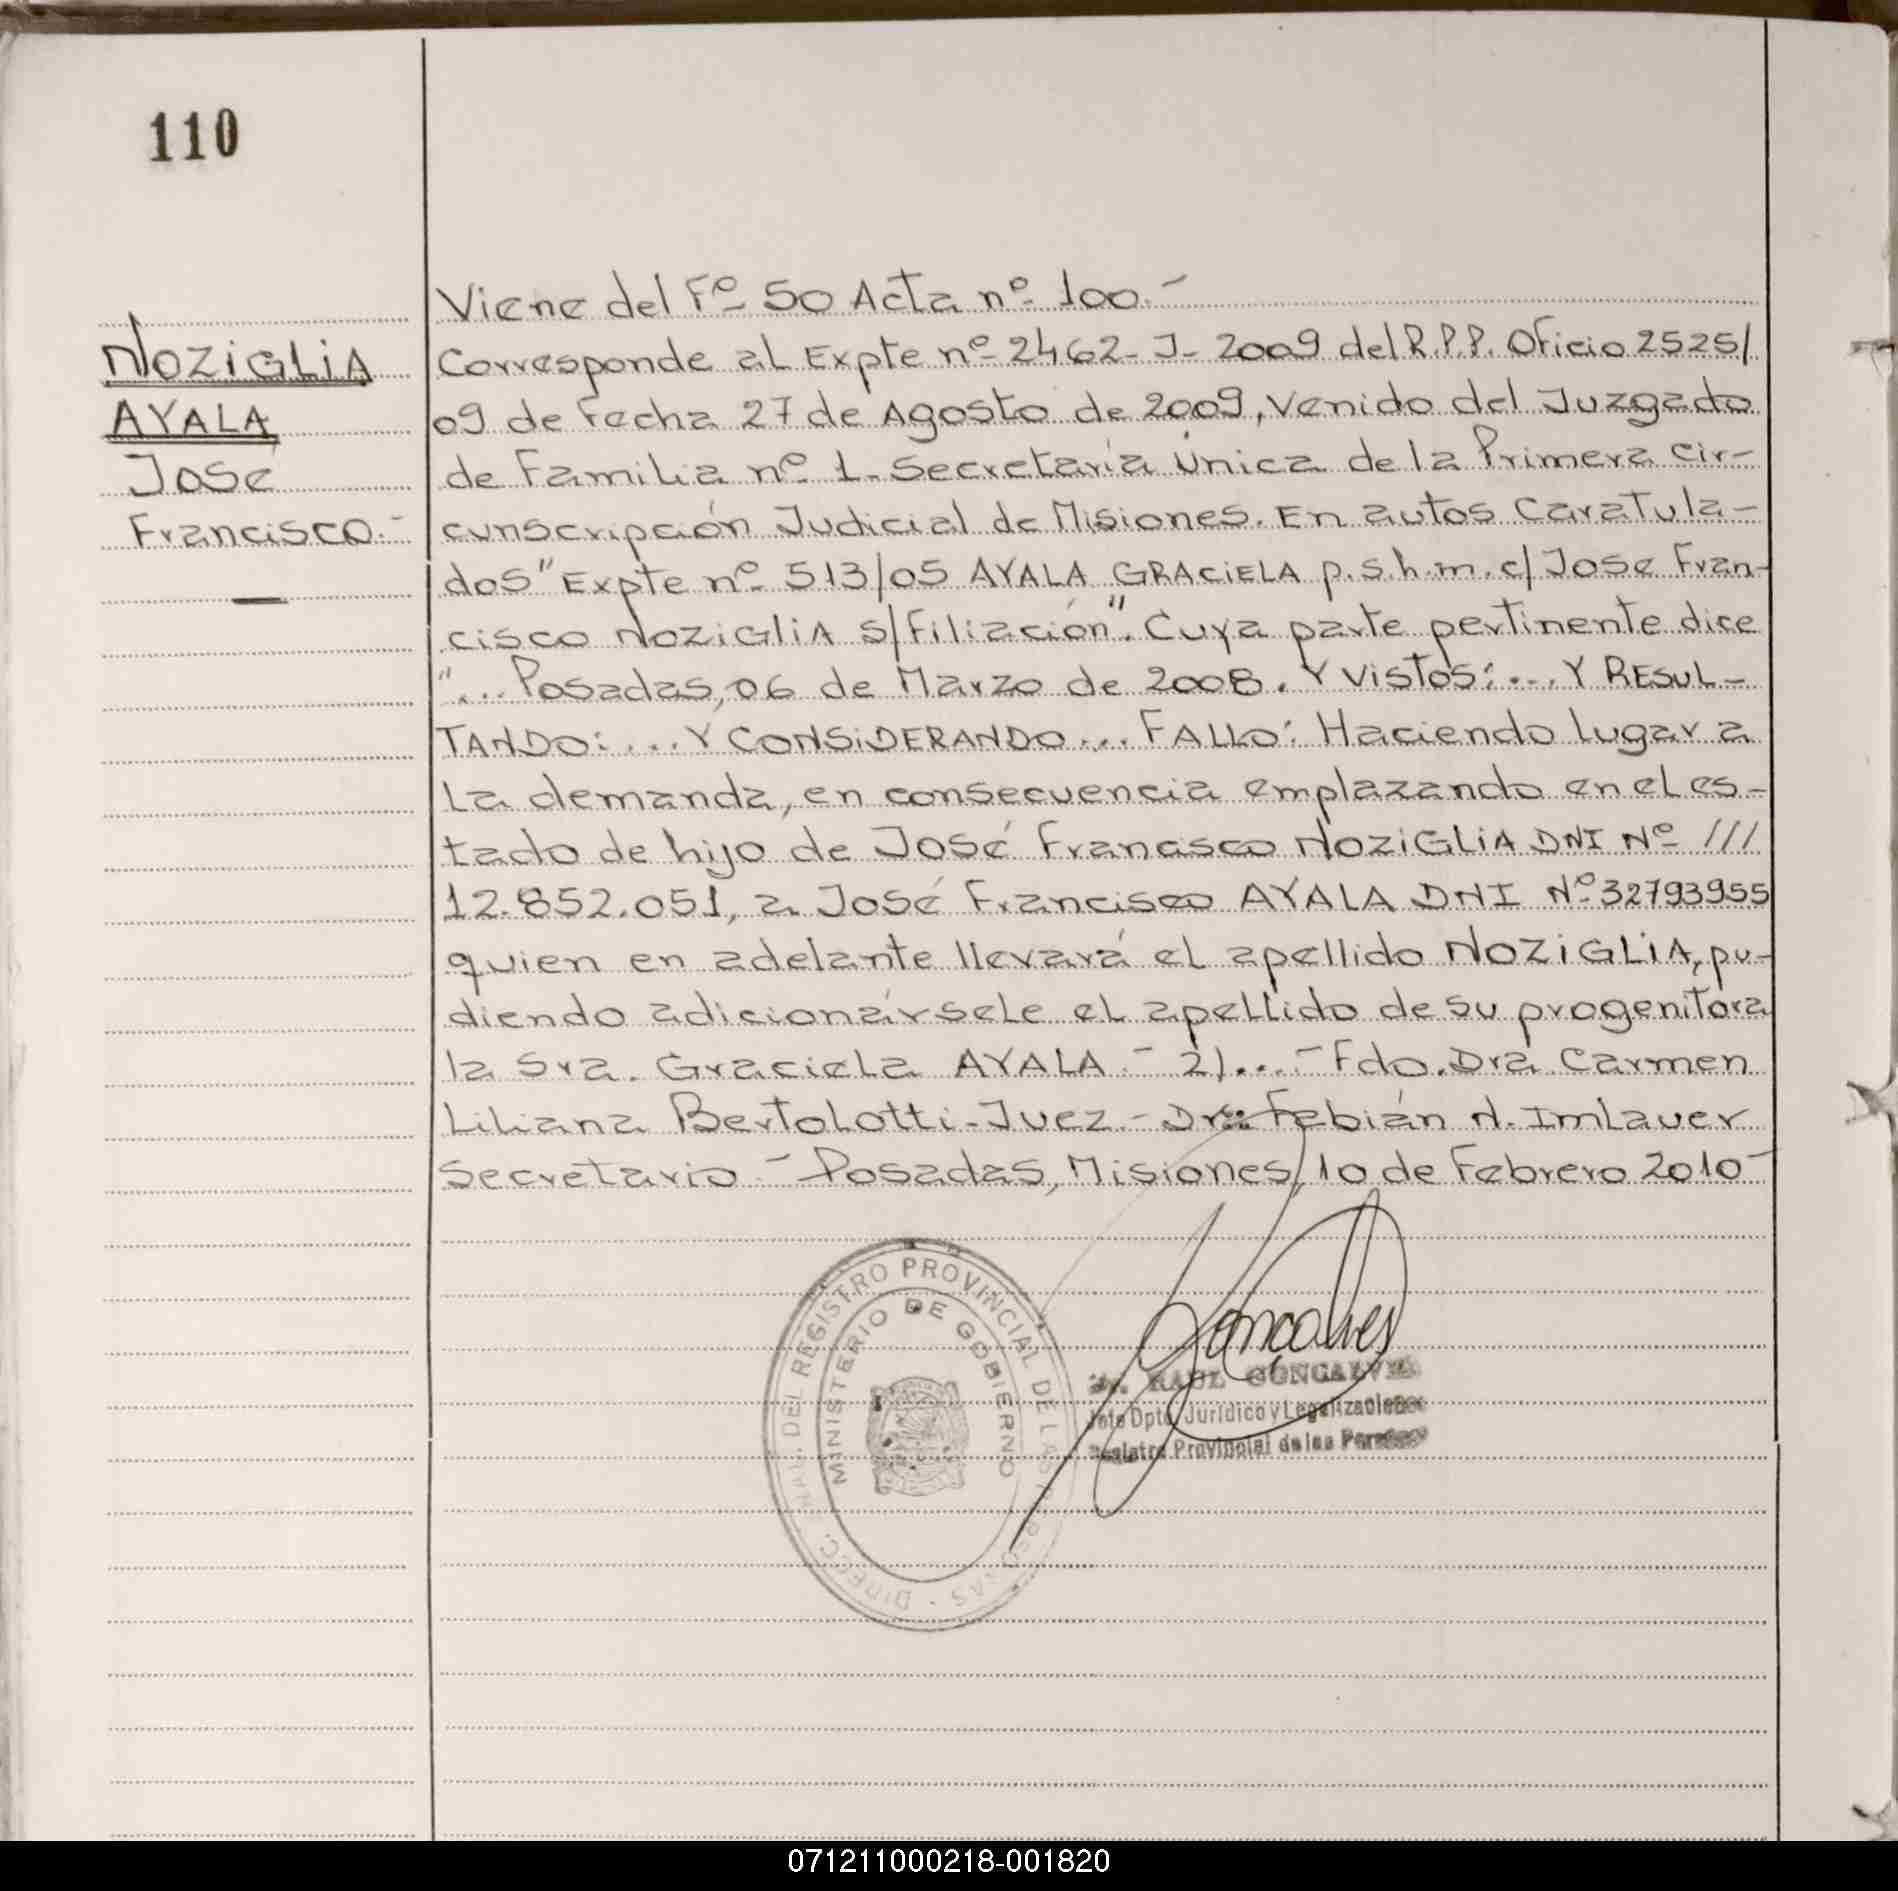 110
NOZIGLIA
AYALA
Jose
Francisco.-
Viene del Fº 50 Acta nº 100.-
Corresponde al Expte nº 2462-J-2009 del R.P.P. Oficio 2525/
09 de Fecha 27 de Agosto de 2009, Venido del Juzgado
de Familia nº 1-Secretaría Única de la Primera Cir-
cunscripción Judicial de Misiones. En autos Caratula-
dos "Expte nº 513/05 AYALA GRACIELA p.s.h.m. c/ Jose Fran-
cisco NOZIGLIA S/Filiación". Cuya parte pertinente dice
"... Posadas, 06 de Marzo de 2008. Y Vistos:... Y RESUL-
TANDO:... Y CONSIDERANDO... FALLO: Haciendo lugar a
La demanda, en consecuencia emplazando en el es-
tado de hijo de José Francisco NOZIGLIA DNI Nº ///
12.852.051, a José Francisco AYALA DNI Nº 32793955
quien en adelante llevará el apellido NOZIGLIA, pu-
diendo adicionársele el apellido de su progenitora
la Sra. Graciela AYALA.- 2)...- Fdo. Dra Carmen
Liliana Bertolotti-Juez.- Dr. Febián N. Imlauer
Secretario.- Posadas, Misiones, 10 de Febrero 2010-
DIRECC. DEL REGISTRO PROVINCIAL DE LAS PERSONAS
MINISTERIO DE GOBIERNO
Goncalves
Dr. RAUL GONCALVES
Jefe Dpto. Jurídico y Legalizaciones
Registro Provincial de las Personas
071211000218-001820